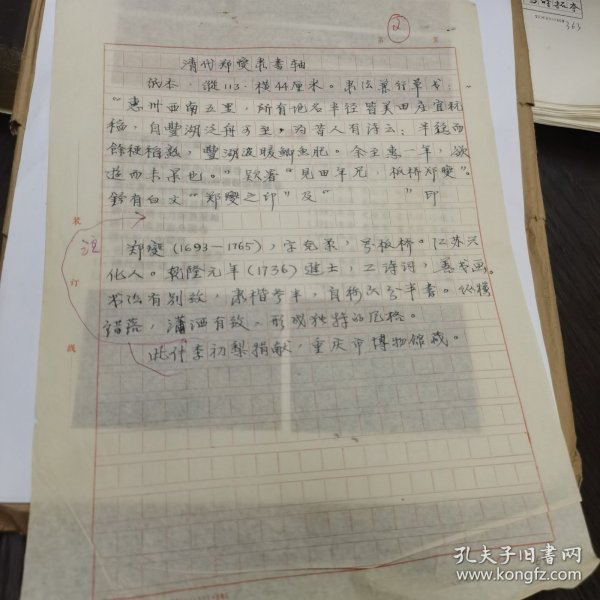 第 2 页
清代郑燮隶书轴
纸本,纵113、横44厘米。隶法兼行草书:
"惠州西南五里,所有地名半径皆美田在宜秔
稌,自豐湖泛舟可至,为昔人有诗云:半径西
餘秔稻熟,豐湖波暖鲫鱼肥。余至惠一年,欲
遊而未果也。"款署"見田年兄,板桥郑燮"。
钤有白文"郑燮之印"及"        "印
郑燮(1693—1765),字克柔,号板桥。江苏兴
化人。乾隆元年(1736)进士,工诗词,善书画。
书法有别致,隶楷参半,自称六分半书。纵横
错落,潇洒有致、形成独特的风格。
此件李初梨捐献,重庆市博物馆藏。
注
装
订
线
363
孔夫子旧书网
www.kongfz.com